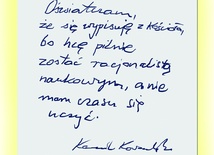 Oświadczam,
że się wypisuję z Kościoła,
bo chcę pilnie
zostać racjonalistą
naukowym, a nie
mam czasu się
uczyć.